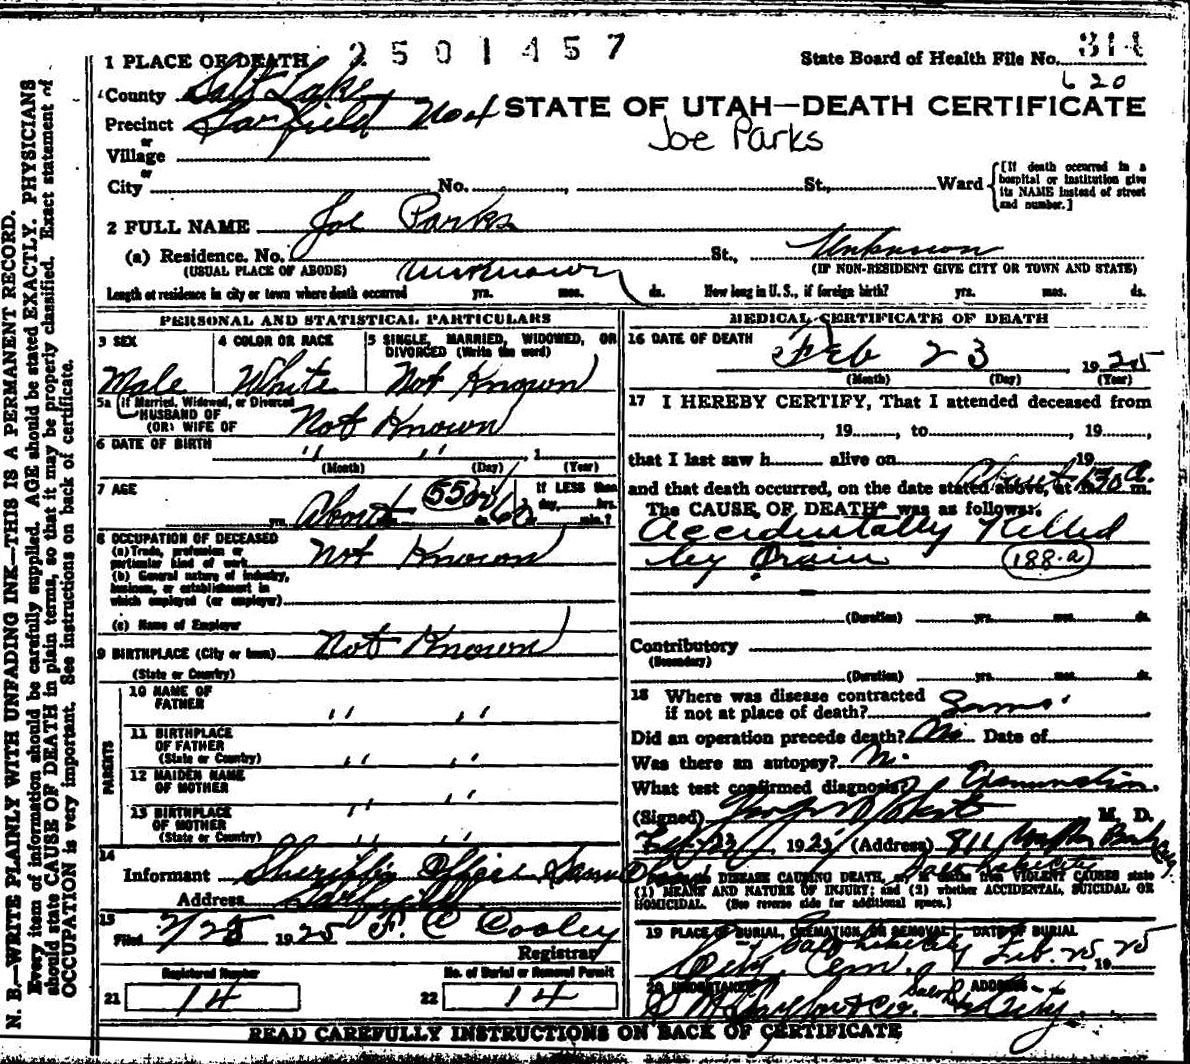 1 PLACE OF DEATH 2501457
State Board of Health File No. 314
620
County Salt Lake
STATE OF UTAH—DEATH CERTIFICATE
Precinct Garfield No 1
Joe Parks
or
Village
or
City No. , St., Ward
[If death occurred in a hospital or institution give its NAME instead of street and number.]
2 FULL NAME Joe Parks
(a) Residence. No. St., Unknown
(USUAL PLACE OF ABODE) unknown (IF NON-RESIDENT GIVE CITY OR TOWN AND STATE)
Length of residence in city or town where death occurred yrs. mos. ds. How long in U. S., if foreign birth? yrs. mos. ds.
PERSONAL AND STATISTICAL PARTICULARS
3 SEX
Male
4 COLOR OR RACE
White
5 SINGLE, MARRIED, WIDOWED, OR DIVORCED (Write the word)
Not Known
5a If Married, Widowed, or Divorced
HUSBAND OF
(OR) WIFE OF Not Known
6 DATE OF BIRTH " " , 1
(Month) (Day) (Year)
7 AGE
yrs. About 55 or 60 ds.
If LESS than
day, hrs.
min.?
8 OCCUPATION OF DECEASED
(a) Trade, profession or
particular kind of work Not Known
(b) General nature of industry,
business, or establishment in
which employed (or employer)
(c) Name of Employer
9 BIRTHPLACE (City or town) Not Known
(State or Country)
PARENTS
10 NAME OF
FATHER " "
11 BIRTHPLACE
OF FATHER
(State or Country) " "
12 MAIDEN NAME
OF MOTHER " "
13 BIRTHPLACE
OF MOTHER
(State or Country) " "
14
Informant Sheriffs Office
Address Garfield
15
Filed 2/25 1925 F. C Cooley
Registrar
Registered Number
21 14
No. of Burial or Removal Permit
22 14
MEDICAL CERTIFICATE OF DEATH
16 DATE OF DEATH
Feb 23 1925
(Month) (Day) (Year)
17 I HEREBY CERTIFY, That I attended deceased from
, 19 , to , 19 ,
that I last saw h alive on 19
and that death occurred, on the date stated above, at About 630 a. m.
The CAUSE OF DEATH was as follows:
Accidentally Killed
by Train 188-a
(Duration) yrs. mos. ds.
Contributory
(Secondary)
(Duration) yrs. mos. ds.
18 Where was disease contracted
if not at place of death? Same
Did an operation precede death? No Date of
Was there an autopsy? No.
What test confirmed diagnosis? Examination.
(Signed) M. D.
Feb 23 1925 (Address) 811
Salt Lake City
DISEASE CAUSING DEATH, VIOLENT CAUSES state
(1) MEANS AND NATURE OF INJURY; and (2) whether ACCIDENTAL, SUICIDAL OR
HOMICIDAL. (See reverse side for additional space.)
19 PLACE OF BURIAL, CREMATION OR REMOVAL DATE OF BURIAL
Salt Lake City
City Cem. Feb. 25 1925
20 UNDERTAKER ADDRESS
& Co. Salt Lake City.
READ CAREFULLY INSTRUCTIONS ON BACK OF CERTIFICATE
N. B.—WRITE PLAINLY WITH UNFADING INK—THIS IS A PERMANENT RECORD.
Every item of information should be carefully supplied. AGE should be stated EXACTLY. PHYSICIANS
should state CAUSE OF DEATH in plain terms, so that it may be properly classified. Exact statement of
OCCUPATION is very important. See instructions on back of certificate.